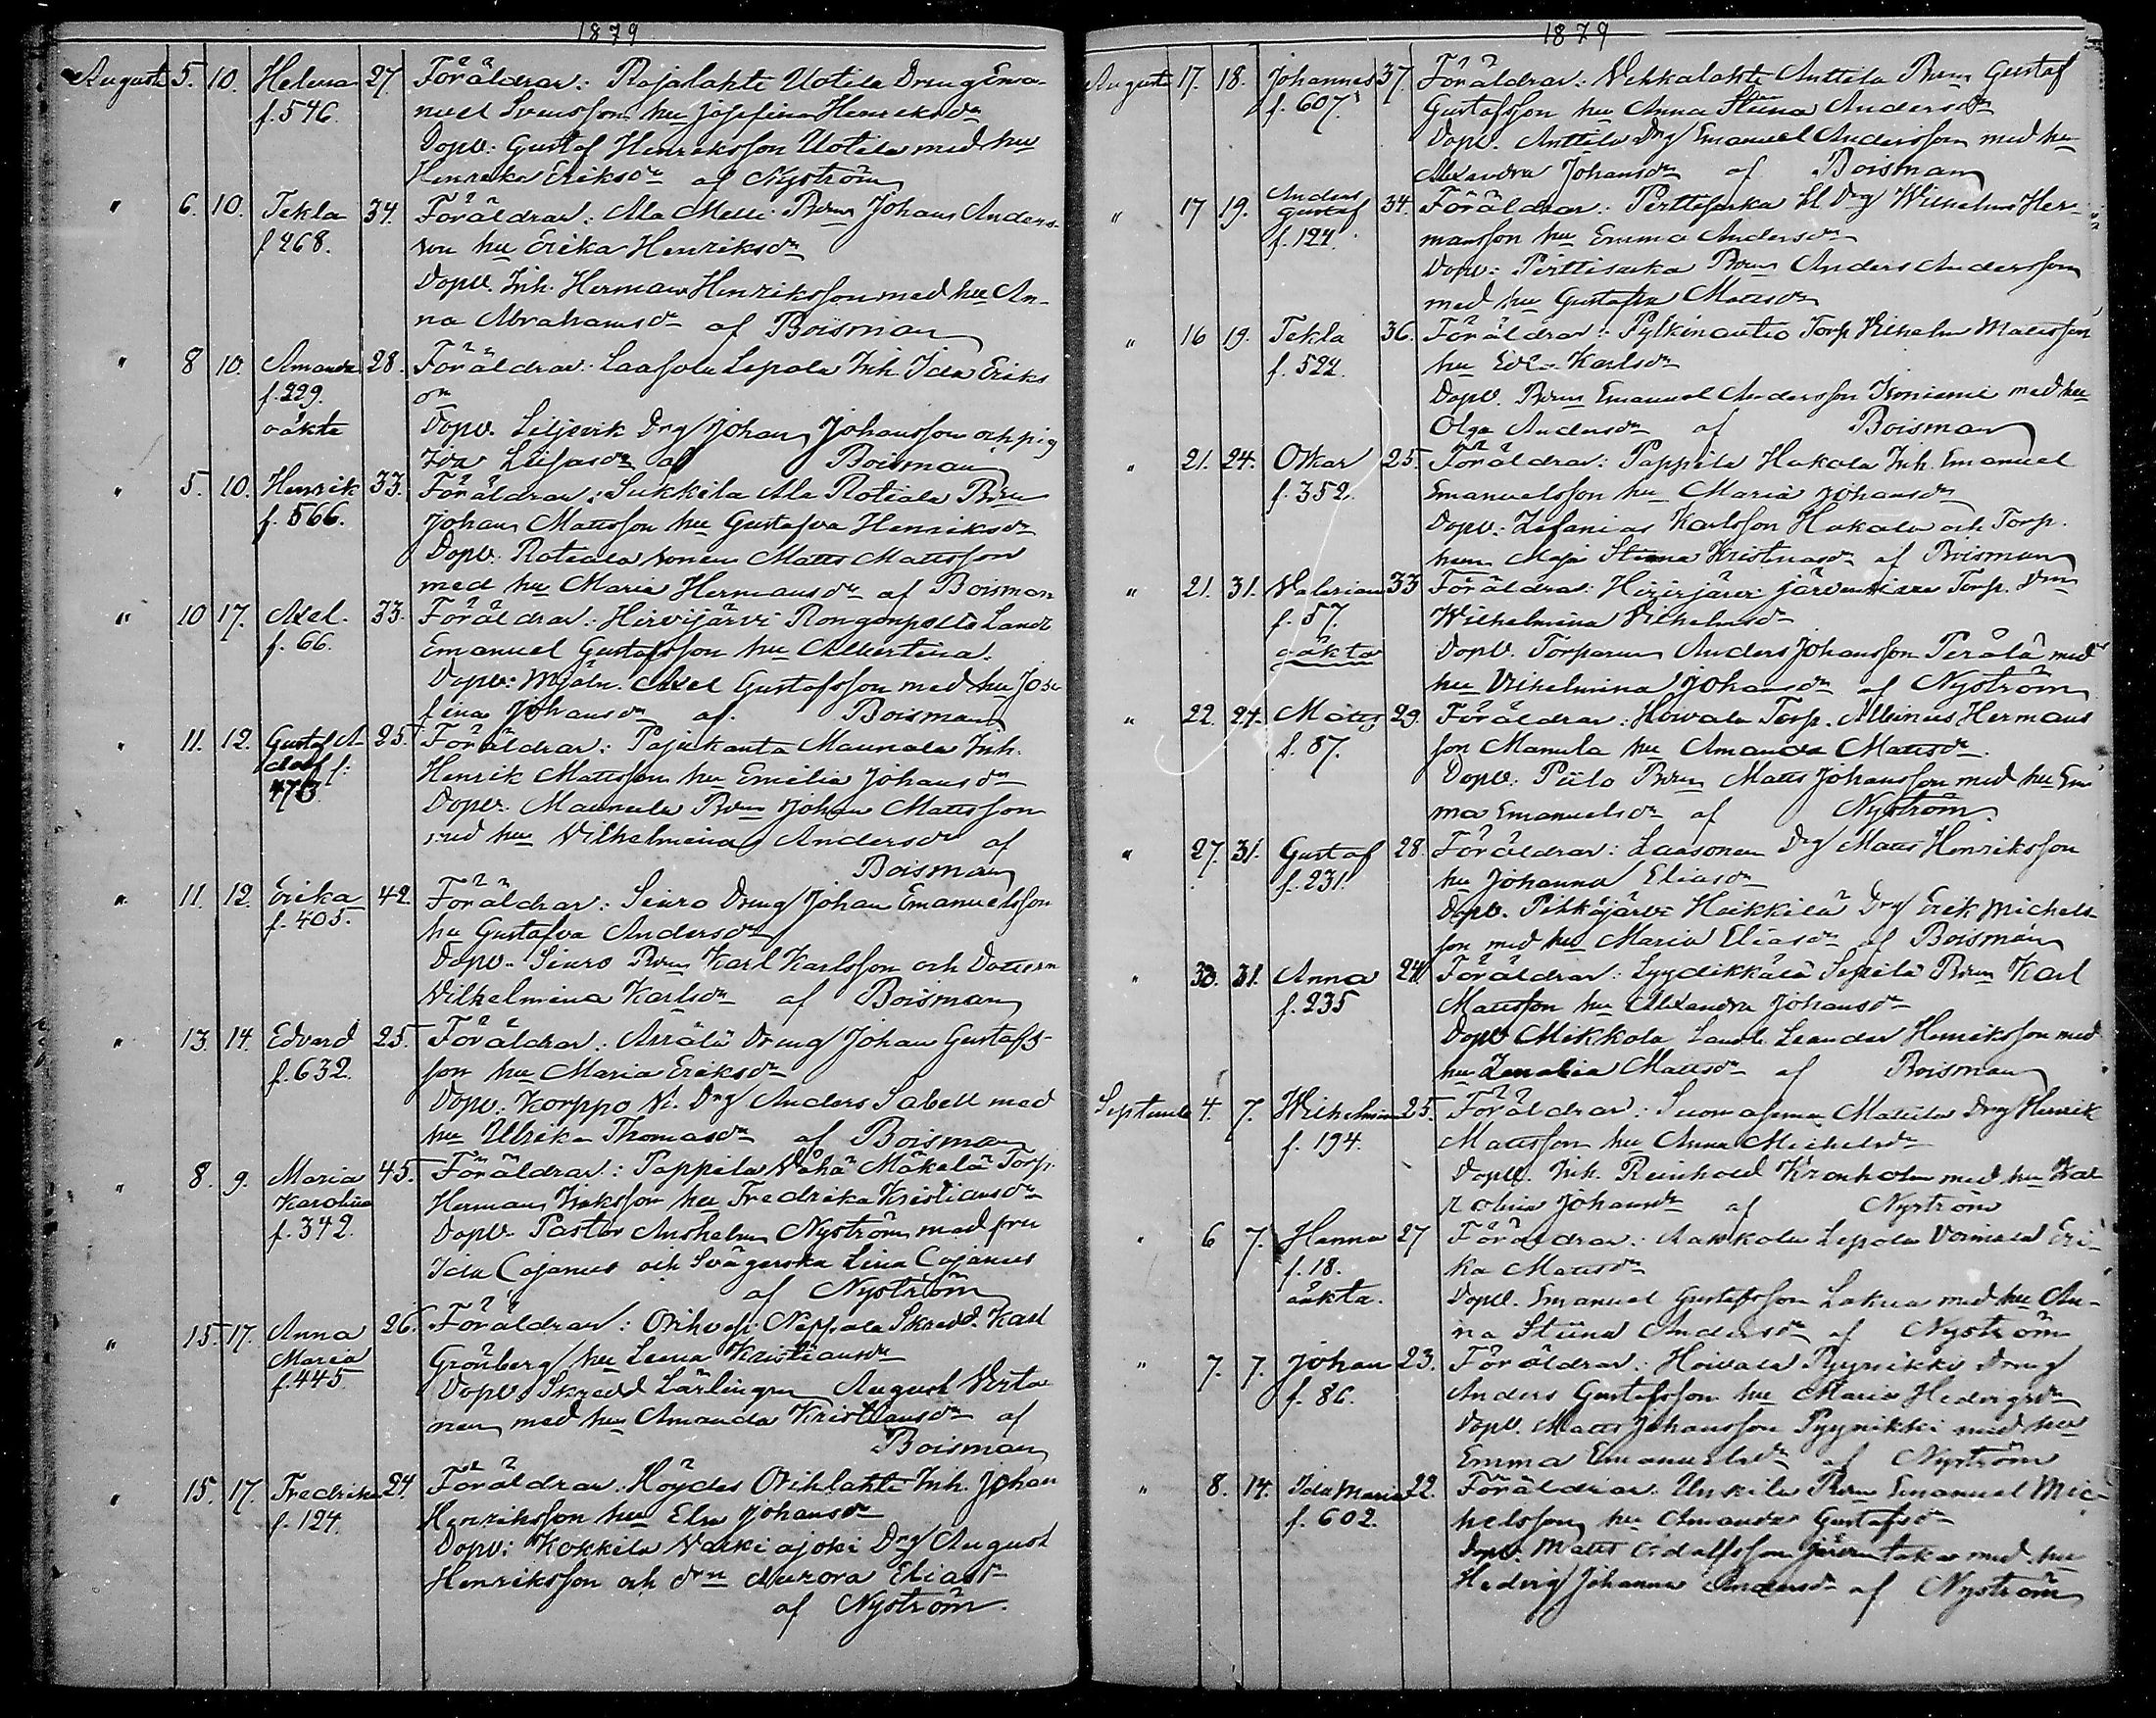 1879
Augusti 5. 10. Helena 27. Föräldrar: Rajalahti Uotila Dreng Ema-
f. 546. nuel Svensson hu Josefina Henriksdr
Dopv: Gustaf Henriksson Uotila med hu
Henrika Eriksdr af Nyström
" 6. 10. Tekla 34. Föräldrar: Ala Melli Bdn Johans Anders-
f 268. son hu Erika Henriksdr
Dopv. Inh. Herman Henriksson med hu An-
na Abrahamsdr af Boisman
" 8 10. Amanda 28. Föräldrar: Laasola Lepola Inh. Ida Eriks
f. 229. dr
oäkta Dopv. Liljevik Drg Johan Johansson och pig
Ida af Boisman
" 5. 10. Henrik 33. Föräldrar: Sukkila Ala Rotiala Bdn
f. 566. Johan Mattsson hu Gustafva Henriksdr
Dopv: Rotiala sonen Matts Mattsson
med hu Maria Hermansdr af Boisman
" 10 17. Axel. 33. Föräldrar: Hirvijärvi Rongonpelto Landb
f. 66. Emanuel Gustafsson hu Albertina.
Dopv: Mjöln. Axel Gustafsson med hu Jose
fina Johansdr af Boisman
" 11. 12. Gustaf A- 25. Föräldrar: Pajukanta Maunula Inh.
dolf f: Henrik Mattsson hu Emilia Johansdr
473. Dopv: Maunula Bdn Johan Mattsson
med hu Vilhelmina Andersdr af
Boisman
" 11. 12. Erika 42. Föräldrar: Siuro Dreng Johan Emanuelsson
f. 405. hu Gustafva Andersdr
Dopv. Siuro Bdn Karl Karlsson och Dottern
Vilhelmina Karlsdr af Boisman
" 13. 14. Edvard 25. Föräldrar: Ärrälä Dreng Johan Gustafs-
f. 632. son hu Maria Eriksdr
Dopv: Korppo Drg Anders Sabell med
hu Ulrika Thomasdr af Boisman
" 8. 9. Maria 45. Föräldrar: Pappila Vähä Mäkelä Torp.
Karolina Herman hu Fredrika Kristiansdr
f. 342. Dopv. Pastor Anshelm Nyström med fru
Ida Cajanus och Svägerska Lina Cajanus
af Nyström
" 15. 17. Anna 26. Föräldrar: Orihvesi Neppala Skredd. Karl
Maria Grönberg hu Leena Kristiansdr
f. 445 Dopv. Skredd Lärlingen August Virta
nen med hu Amanda Kristiansdr af
Boisman
" 15. 17. Fredrika 24. Föräldrar: Höydes Orihlahti Inh. Johan
f. 124. Henriksson hu Elva Johansdr
Dopv: Kokkila Drg August
Henriksson och drn Aurora Eliasdr
af Nyström.
1879
Augusti 17. 18. Johannes 37. Föräldrar: Vehkalahti Anttila Bdn Gustaf
f. 607. Gustafsson hu Anna Stina Andersdr
Dopv. Anttila Drg Emanuel Andersson med hu
Alexandra Johansdr af Boisman
" 17 19. Anders 34. Föräldrar: Perttisarka Drg Wilhelm Her-
Gustaf mansson hu Emma Andersdr
f. 124. Dopv: Perttisarka Bdn Anders Andersson
med hu Gustafva Mattsdr
" 16 19. Tekla 36. Föräldrar: Pylkinautio Torp Vilhelm Mattsson
f. 522. hu Edla Karlsdr
Dopv. Bdn Emanuel Andersson Isoniemi med hu
Olga Andersdr af Boisman
" 21. 24. Oskar 25. Föräldrar: Pappila Hakala Inh. Emanuel
f. 352. Emanuelsson hu Maria Johansdr
Dopv: Zefanias Karlsson Hakala och Torp.
hem Maja Stina Kristiansdr af Boisman
" 21. 31. Valerian 33 Föräldrar: Hirvijärvi Torp. dm
f. 57. Wilhelmina Vilhelmsdr
oäkta Dopv. Torparen Anders Johansson Perälä med
hu Vilhelmina Johansdr af Nyström
" 22. 24. Matts 29. Föräldrar: Hoivala Torp. Albinus Hermans
f. 87. son Manula hu Amanda Mattsdr
Dopv: Piilo Bdn Matts Johansson med hu Em
ma Emanuelsdr af Nyström
" 27. 31. Gustaf 28. Föräldrar: Laasonen Drg Matts Henriksson
f. 231. hu Johanna Eliasdr
Dopv. Pitkäjärvi Heikkilä Drg Erik Michels-
son med hu Maria Eliasdr af Boisman
" 30. 31. Anna 24. Föräldrar: Lyydikkälä Seppilä Bdn Karl
f. 235 Mattsson hu Alexandra Johansdr
Dopv Mikkola Landb. Leander Henriksson med
hu Zenobia Mattsdr af Boisman
Septemb 4. 7. Wilhelmina 25. Föräldrar: Suomasema Mattila Drg Henrik
f. 194. Mattsson hu Anna Michelsdr
Dopv. Inh. Reinhold Kronholm med hu Ka-
rolina Johansdr af Nyström
" 6 7. Hanna 27 Föräldrar: Aakkola Lepola Voimala Eri-
f. 18. ka Mattsdr
oäkta. Dopv. Emanuel Gustafsson Lakua med hu An-
na Stiina Andersdr af Nyström
" 7. 7. Johan 23. Föräldrar: Hoivala Pyynikki Dreng
f. 86. Anders Gustafsson hu Maria Hedvigsdr
Dopv. Matts Johansson Pyynikki med hu
Emma Emanuelsdr af Nyström
" 8. 14. Ida Maria 22. Föräldrar: Unkila Bdn Emanuel Mic-
f. 602. helsson hu Amanda Gustafsdr
Dopv. Matts Adolfsson Järventaka med hu
Hedvig Johanna Andersdr af Nyström